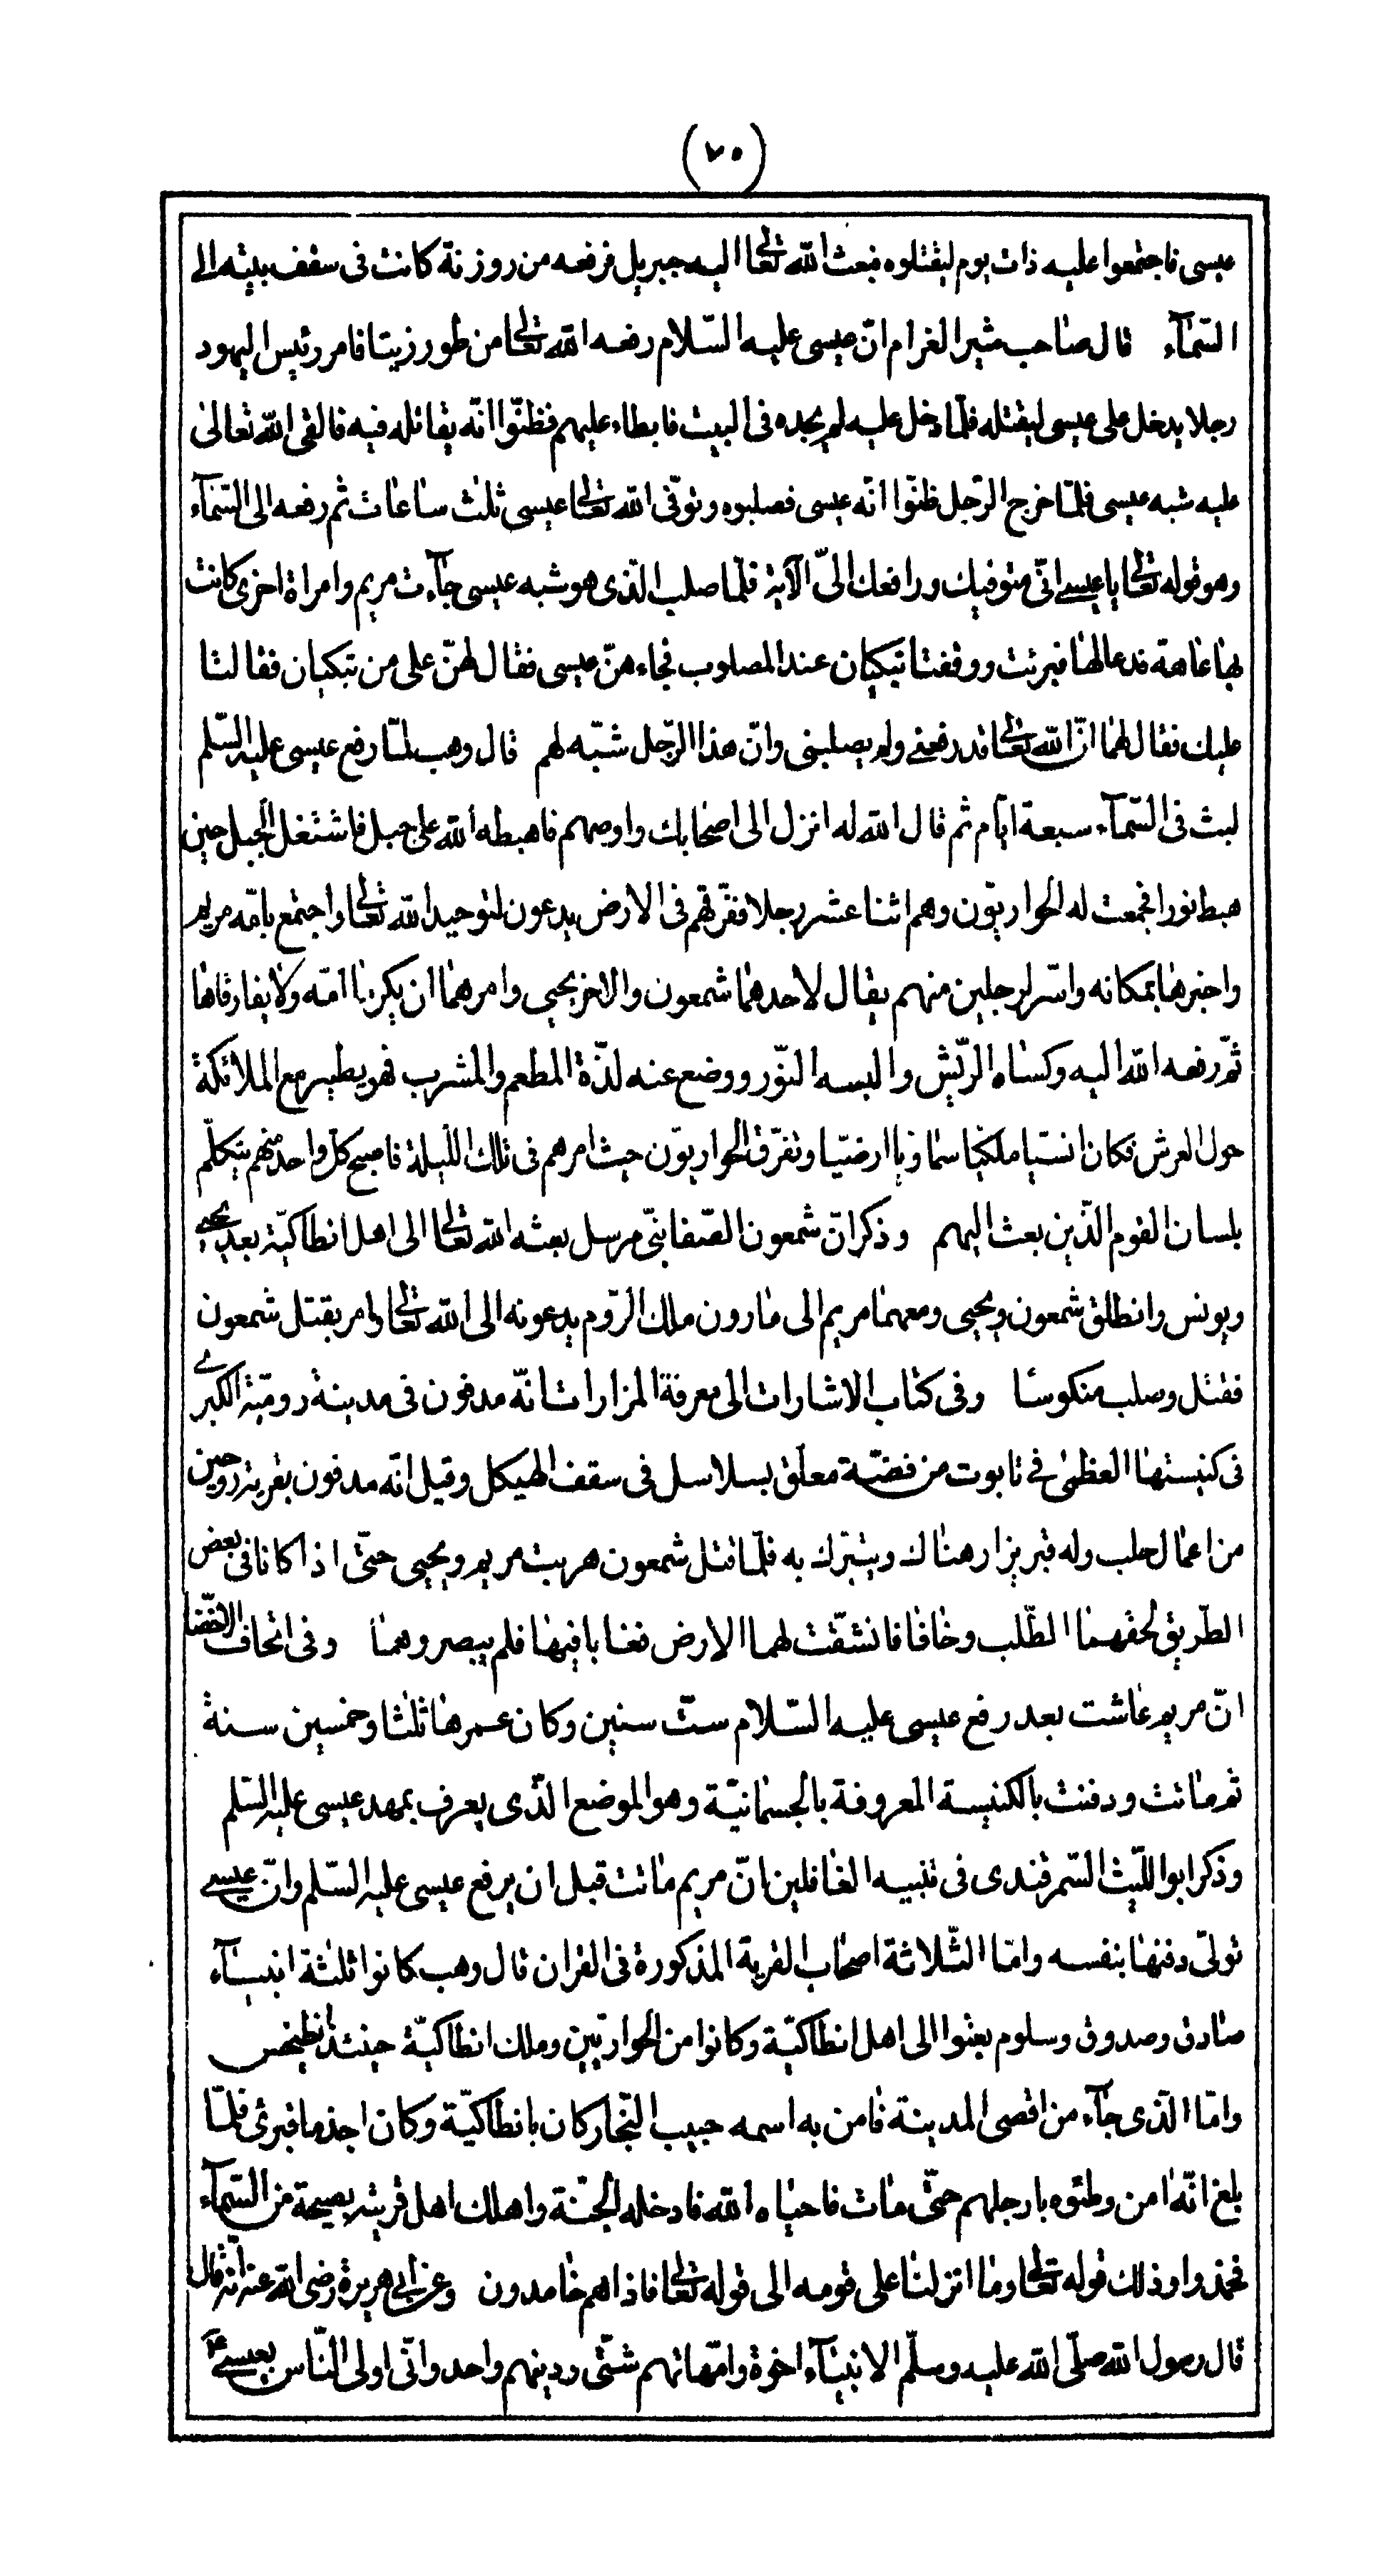 (٧٠)
عيسى فاجتمعوا عليه ذات يوم ليقتلوه فبعث الله تعالى اليه جبريل فرفعه من روزنة كانت فى سقف بيته الى
السّمآء قال صاحب مثير الغرام انّ عيسى عليه السّلام رفعه الله تعالى من طور زيتا فامر رئيس اليهود
رجلا يدخل على عيسى ليقتله فلمّا دخل عليه لم يجده فى البيت فابطاء عليهم فظنّوا انّه يقاتله فيه فالقى الله تعالى
عليه شبه عيسى فلمّا خرج الرّجل ظنّوا انّه عيسى فصلبوه وتوفّى الله تعالى عيسى ثلث ساعات ثم رفعه الى السّمآء
وهو قوله تعالى يا عيسى انّى متوفيك ورافعك الىّ الآية فلمّا صلب الّذى هو شبه عيسى جآءت مريم وامراة اخرى كانت
بها عاهة فدعا لها فبرئت ووقفتا تبكيان عند المصلوب فجاءهنّ عيسى فقال لهنّ على من تبكيان فقالتا
عليك فقال لهما انّ الله تعالى قد رفعنى ولم يصلبنى وانّ هذا الرّجل شبّه لهم قال وهب لمّا رفع عيسى عليه السّلم
لبث فى السّمآء سبعة ايّام ثم قال الله له انزل الى اصحابك واوصهم فاهبطه الله على جبل فاشتغل الجبل حين
هبط نورا فجمعت له الحواريّون وهم اثنا عشر رجلا ففرّقهم فى الارض يدعون لتوحيد الله تعالى واجتمع بامّه مريم
واخبرها بمكانه واسّر لرجلين منهم يقال لاحدهما شمعون والاخر يحيى وامرهما ان يكرما امّه ولا يفارقاها
ثمّ رفعه الله اليه وكساه الرّيش والبسه النّور ووضع عنه لذّة المطعم والمشرب فهو يطير مع الملائكة
حول العرش فكان انسيّا ملكيّا سماويّا ارضيّا وتفرّق الحواريّون حيث امرهم فى تلك اللّيلة فاصبح كلّ واحد منهم يتكلّم
بلسان القوم الّذين بعث اليهم وذكر انّ شمعون الصّفا نبّى مرسل بعثه الله تعالى الى اهل انطاكيّة بعد يحيى
ويونس وانطلق شمعون ويحيى ومعهما مريم الى مارون ملك الرّوم يدعونه الى الله تعالى وامر بقتل شمعون
فقتل وصلب منكوسا وفى كتاب الاشارات الى معرفة المزارات انّه مدفون فى مدينة روميّة الكبرى
فى كنيستها العظمى فى تابوت من فضّة معلّق بسلاسل فى سقف الهيكل وقيل انّه مدفون بقرية روحين
من اعمال حلب وله قبر يزار هناك ويتبّرك به فلمّا قتل شمعون هربت مريم ويحيى حتّى اذا كانا فى بعض
الطّريق لحقهما الطّلب وخافا فانشقّت لهما الارض فغابا فيها فلم يبصروهما وفى اتحاف الاخصّا
انّ مريم عاشت بعد رفع عيسى عليه السّلام ستّ سنين وكان عمرها ثلثا وخمسين سنة
ثم ماتت ودفنت بالكنيسة المعروفة بالجسمانيّة وهو الموضع الّذى يعرف بمهد عيسى عليه السّلم
وذكر ابو اللّيث السّمرقندى فى تنبيه الغافلين انّ مريم ماتت قبل ان يرفع عيسى عليه السّلم وانّ عيسى
تولىّ دفنها بنفسه وامّا الثّلاثة اصحاب القرية المذكورة فى القران قال وهب كانوا ثلثة انبيآء
صادق وصدوق وسلوم بعثوا الى اهل انطاكيّة وكانوا من الحواريّين وملك انطاكيّة حينئذ انطيخس
وامّا الّذى جآء من اقصى المدينة فامن به اسمه حبيب النّجار كان بانطاكيّة وكان اجذما فبرئ فلمّا
بلغ انّه امن وطئوه بارجلهم حتّى مات فاحياه الله فادخله الجنّة واهلك اهل قريته بصيحة من السّمآء
فخمدوا وذلك قوله تعالى وما انزلنا على قومه الى قوله تعالى فاذاهم خامدون وعن ابى هريرة رضى الله عنه انّه قال
قال رسول الله صلّى الله عليه وسلّم الانبيآء اخوة وامّهاتهم شتّى ودينهم واحد وانّى اولى النّاس بعيسى